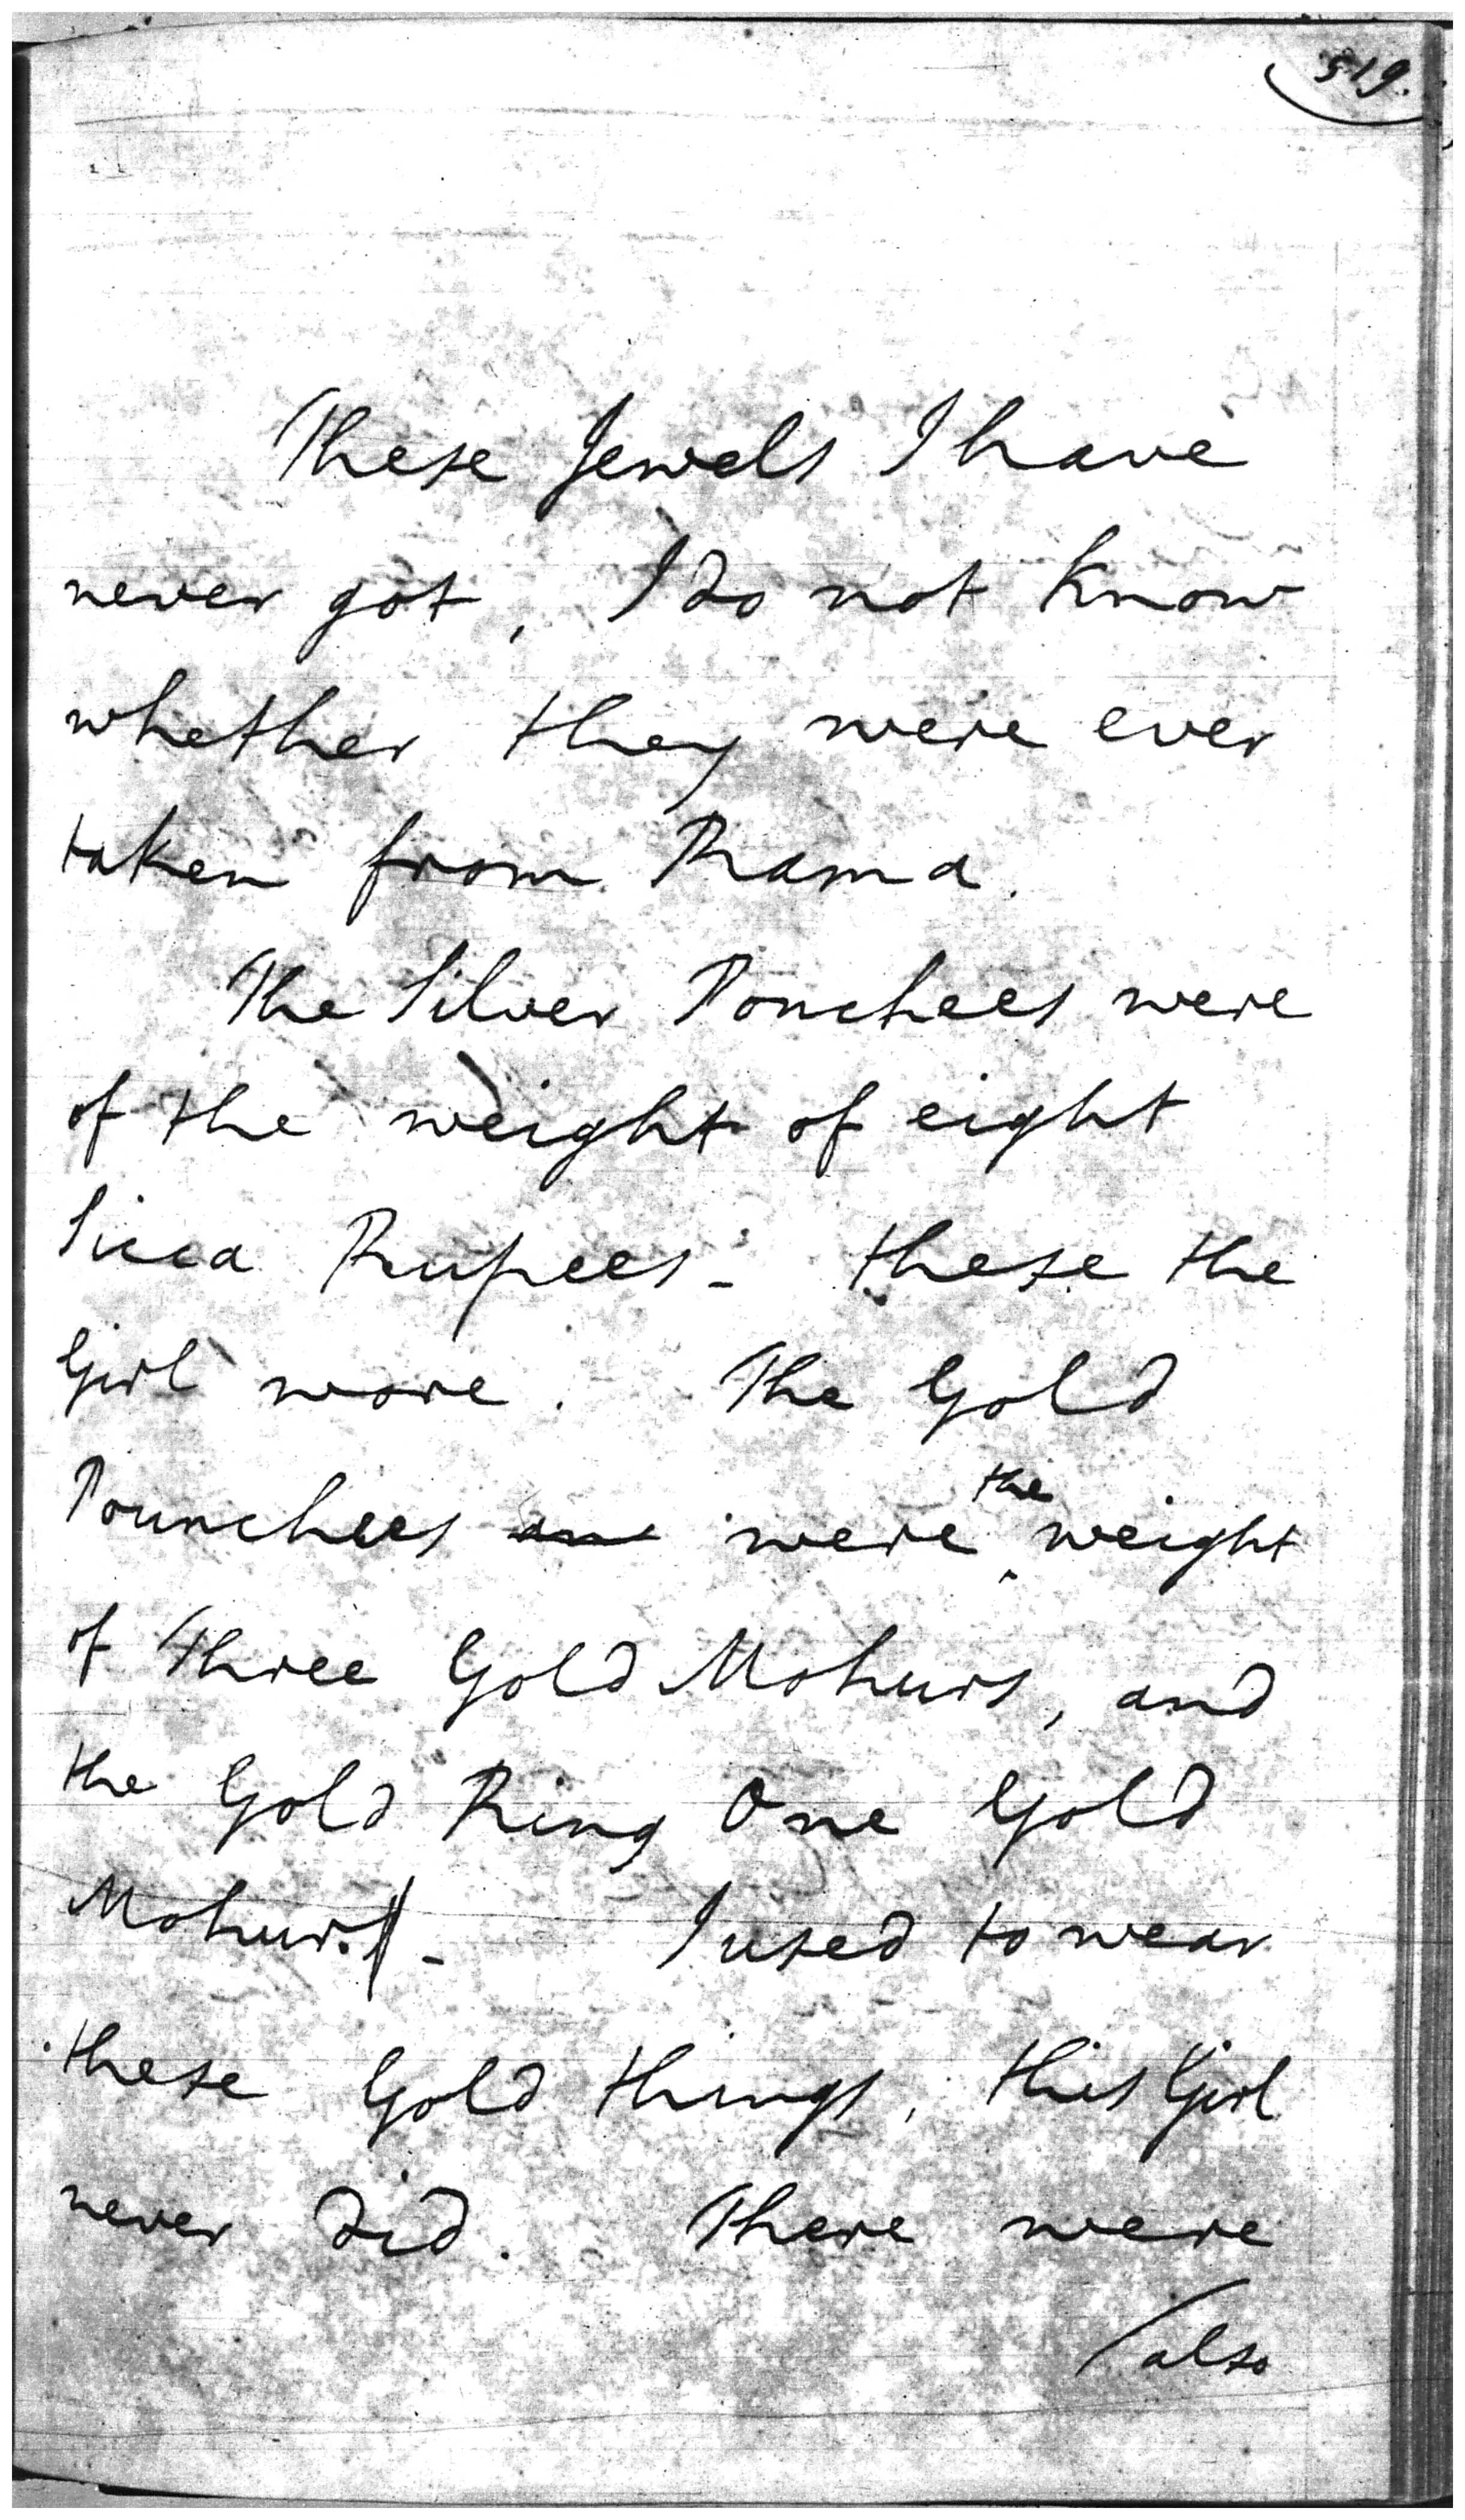 519.
These Jewels I have
never got, I do not Know
whether they were ever
taken from Rama.
The Silver Ponchees were
of the weight of eight
Sicca Rupees - these the
Girl wore. The Gold
Pounchees were the weight
of Three Gold Mohurs, and
the Gold Ring One Gold
Mohur. - I used to wear
these Gold things, this Girl
never did. There were
/also